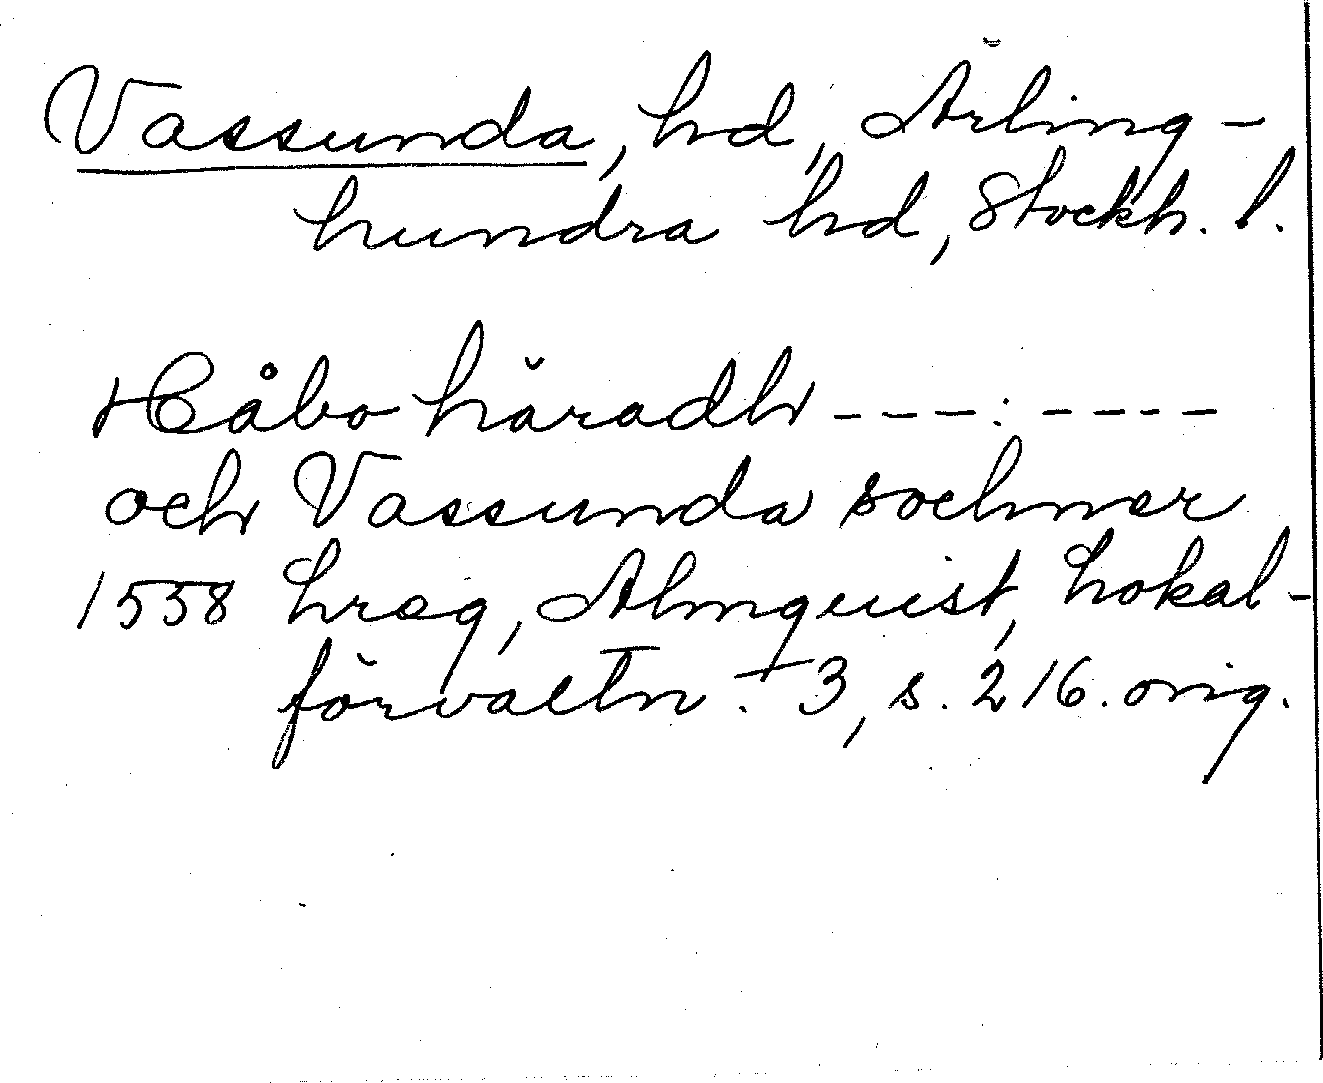 Vassunda, hd, Ärling-
hundra hd, Stockh. l.
Håbo häradh ---: ----
och Vassunda sochner
1558 hreg, Almquist, Lokal-
förvaltn. 3, s. 216. orig.